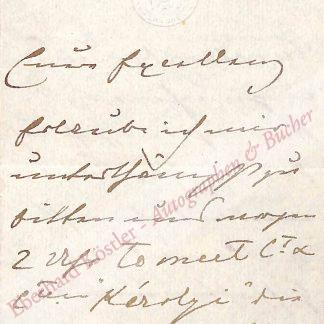 Eure Excellenz
erlaube ich mir
unterthänigst zu
bitten uns morgen
2 Uhr to meet Ct &
"Károlyi" die
Eberhard Köstler - Autographen & Bücher